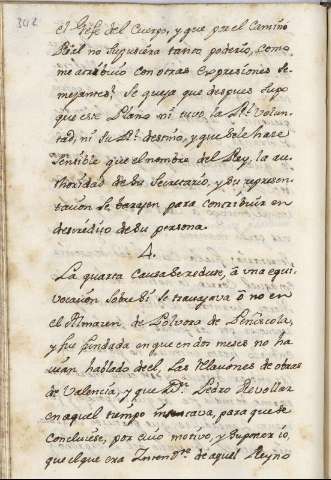 302
el Gefe del Cuerpo, y que por el Camino
Real no supusiera tanto poderio, como
me atribuió con otras expresiones se-
mejantes; Se queja que despues supo
que este Plano ni tuvo la Rl. Volun-
tad, ni su Rl. destino, y que se le hace
sensible que el nombre del Rey, la au-
thoridad de su Secretario, y su represen-
tacion se barajen para contribuir en
descredito de su persona.
4.
La quarta causa se reduce, â una equi-
vocacion sobre si se travajava ô no en
el Almazen de Polvora de Peñiscola,
y fue fundada en que en dos meses no ha
vian hablado de el, las Relaciones de obras
de Valencia, y que Dn. Pedro Revollar
en aquel tiempo instava, para que se
concluiese, por cuio motivo, y supuesto,
que el que era Intendte. de aquel Reyno